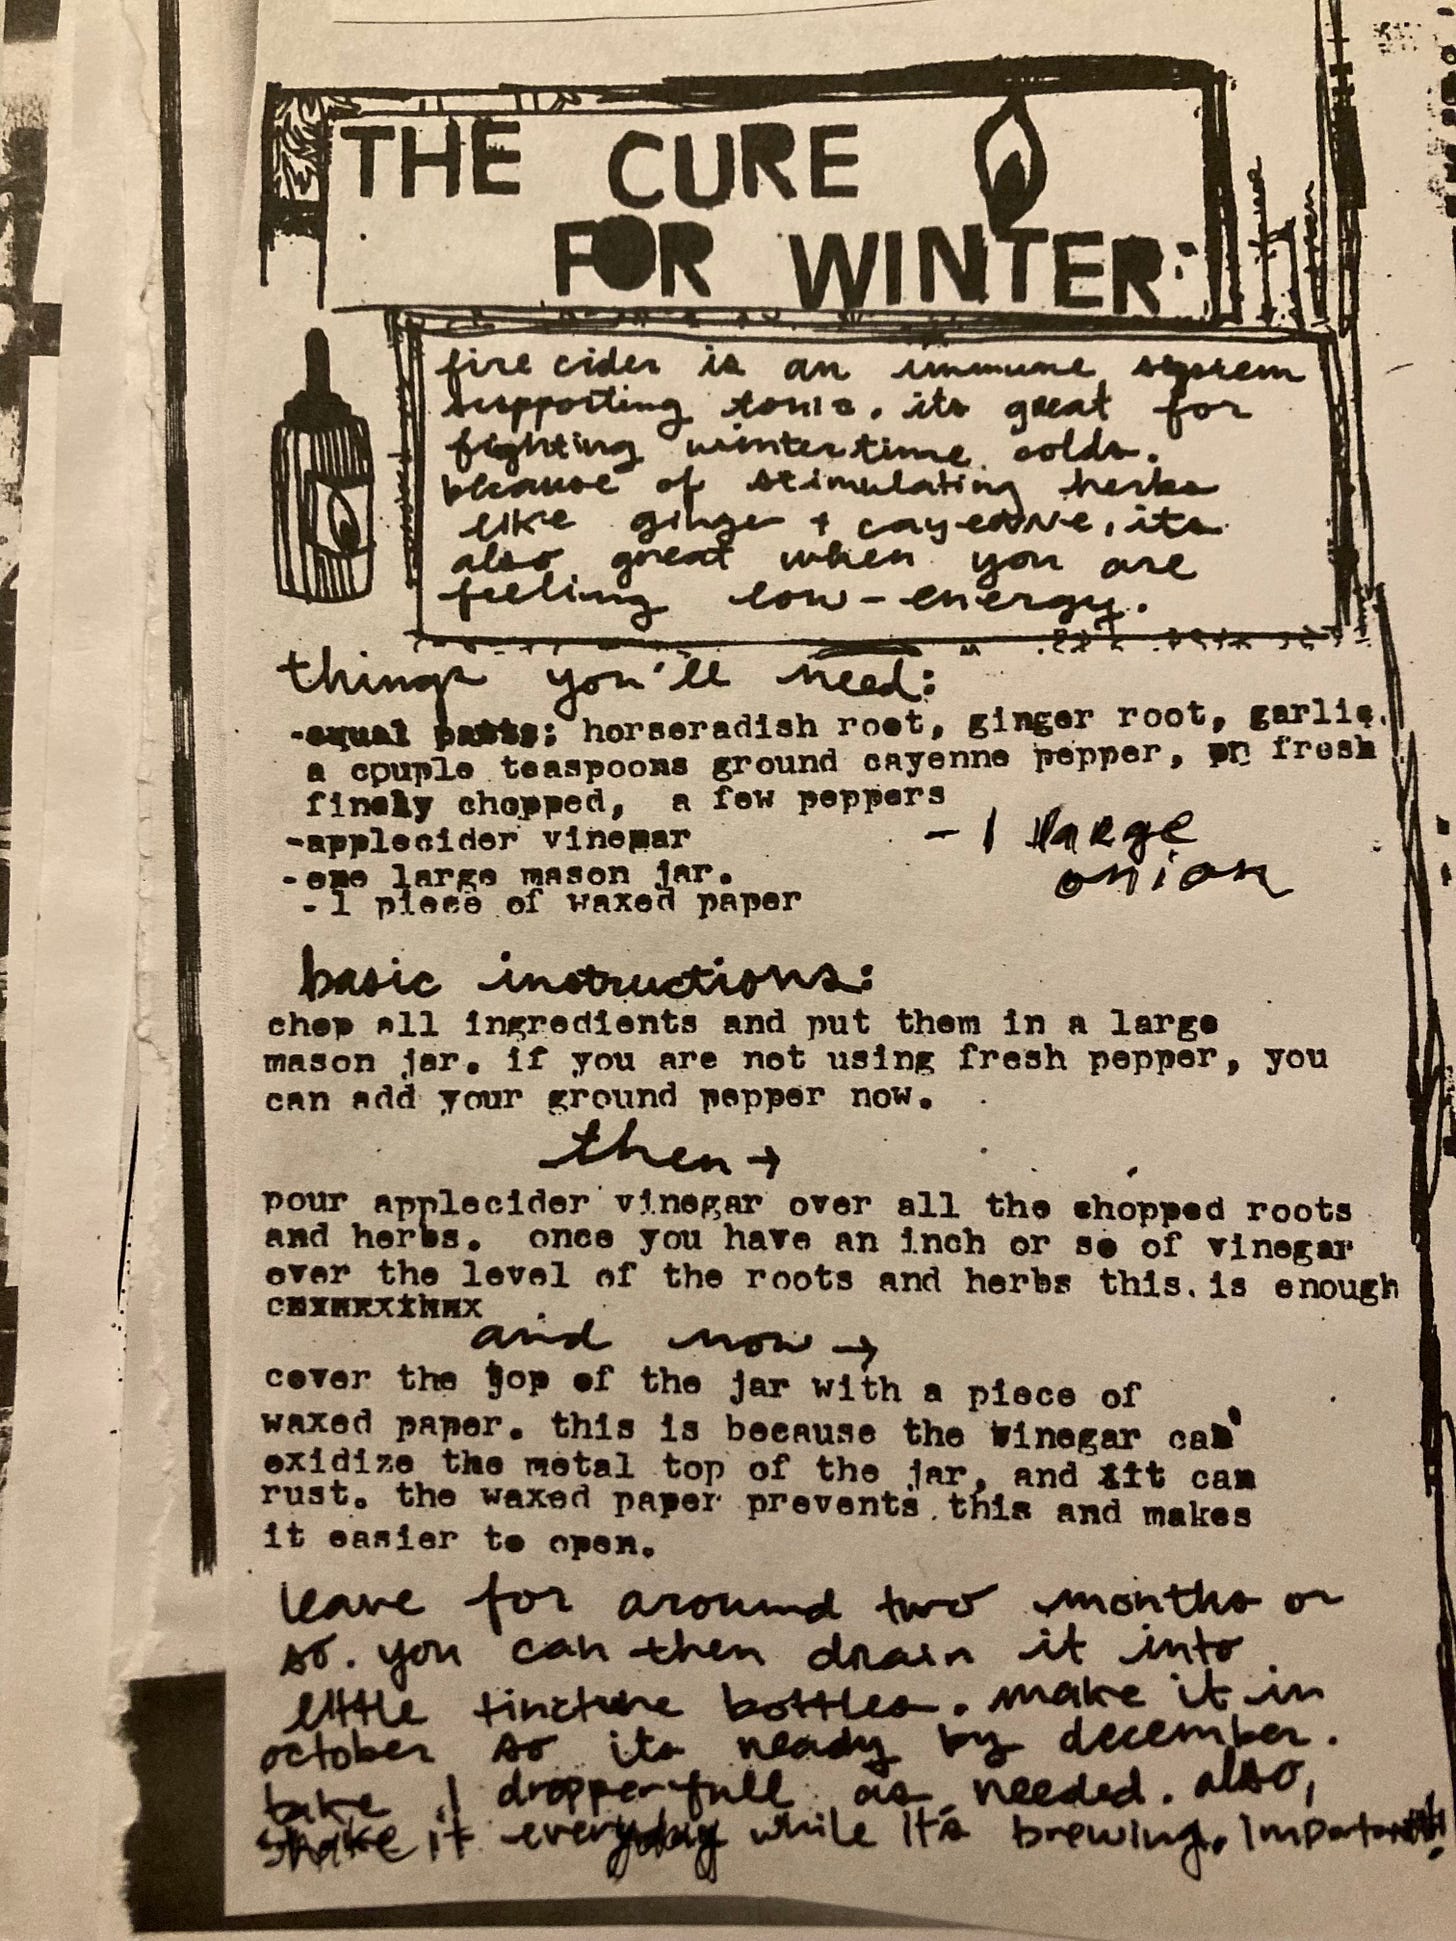 THE CURE
FOR WINTER:
fire cider is an immune system
supporting tonic. its great for
fighting wintertime colds.
because of stimulating herbs
like ginger + cayenne, its
also great when you are
feeling low-energy.
things you'll need:
-equal parts: horseradish root, ginger root, garlic.
a couple teaspoons ground cayenne pepper, or fresh
finely chopped, a few peppers
-applecider vinegar
- 1 large
onion
-one large mason jar.
-1 piece of waxed paper
basic instructions:
chop all ingredients and put them in a large
mason jar. if you are not using fresh pepper, you
can add your ground pepper now.
then→
pour applecider vinegar over all the chopped roots
and herbs. once you have an inch or so of vinegar
over the level of the roots and herbs this is enough
and now→
cover the top of the jar with a piece of
waxed paper. this is because the vinegar can
oxidize the metal top of the jar, and it can
rust. the waxed paper prevents this and makes
it easier to open.
leave for around two months or
so. you can then drain it into
little tincture bottles. make it in
october so its ready by december.
take 1 dropper-full as needed. also,
shake it everyday while it's brewing. Important!